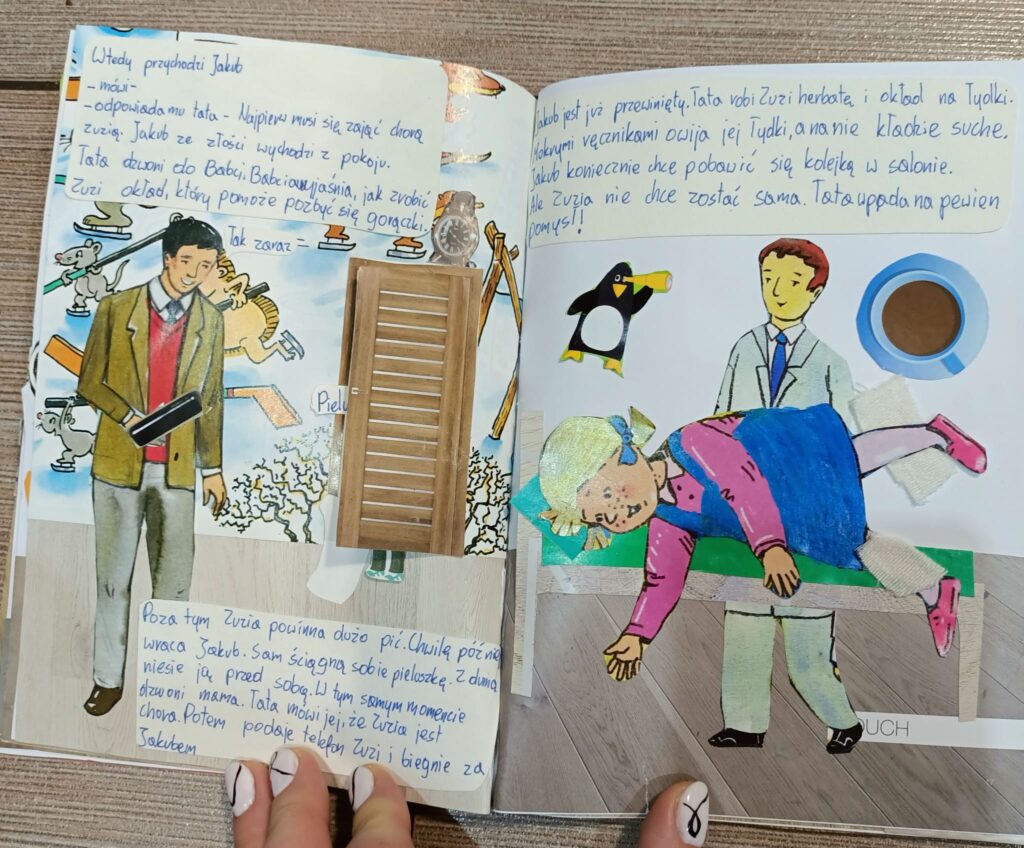 Wtedy przychodzi Jakub
- mówi -
- odpowiada mu tata - Najpierw musi się zająć chorą
zuzią. Jakub ze złości wychodzi z pokoju.
Tata dzwoni do Babci. Babcia wyjaśnia, jak zrobić
Zuzi okład, który pomoże pozbyć się gorączki.
Tak zaraz =
Pielu
Poza tym Zuzia powinna dużo pić. Chwilę później
wraca Jakub. Sam ściągną sobie pieluszkę. Z dumą
niesie ją przed sobą. W tym samym momencie
dzwoni mama. Tata mówi jej, że Zuzia jest
chora. Potem podaje telefon Zuzi i biegnie za
Jakubem
Jakub jest już przewinięty. Tata robi Zuzi herbatę i okład na łydki.
Mokrymi ręcznikami owija jej łydki, a na nie kładzie suche.
Jakub koniecznie chce pobawić się kolejką w salonie.
Ale Zuzia nie chce zostać sama. Tata wpada na pewien
pomysł!
OUCH